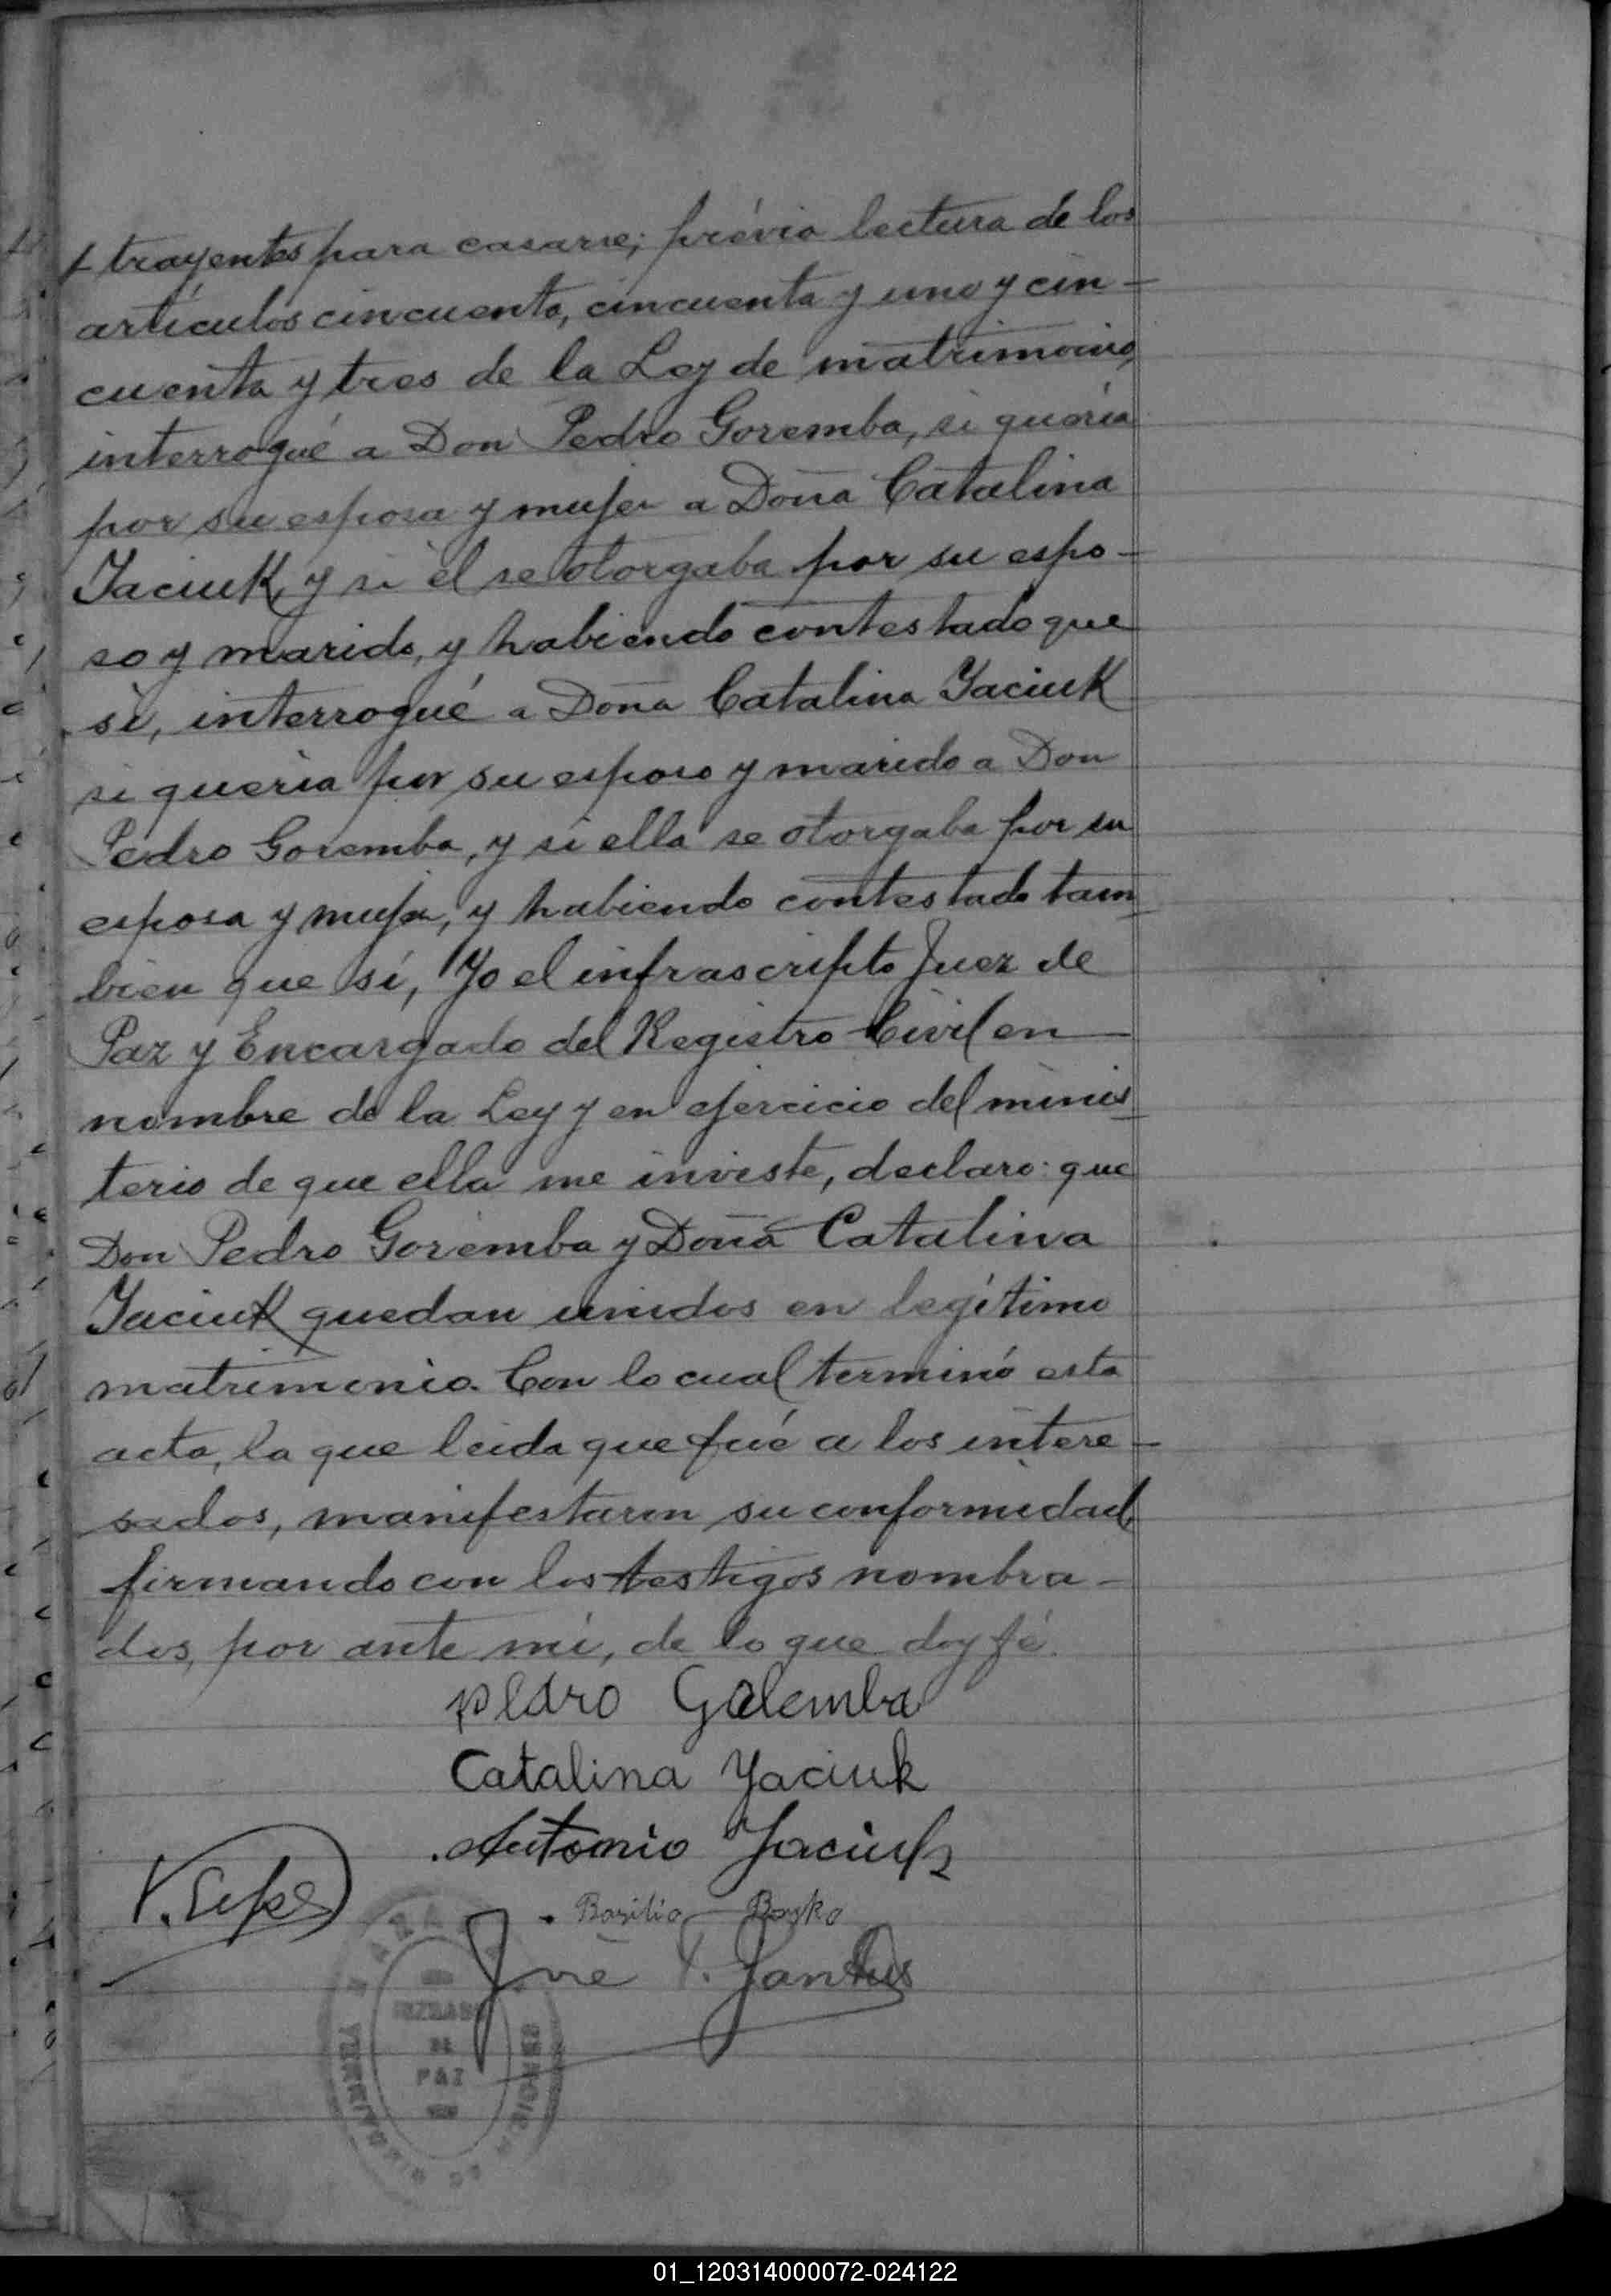 trayentes para casarse; prévia lectura de los
artículos cincuenta, cincuenta y uno y cin-
cuenta y tres de la Ley de matrimonio,
interrogué a Don Pedro Goremba, si quería
por su esposa y mujer a Doña Catalina
Yaciuk, y si él se otorgaba por su espo-
so y marido, y habiendo contestado que
sí, interrogué a Doña Catalina Yaciuk
si quería por su esposo y marido a Don
Pedro Goremba, y si ella se otorgaba por su
esposa y mujer, y habiendo contestado tam-
bien que sí, Yo el infrascripto Juez de
Paz y Encargado del Registro Civil en
nombre de la Ley y en ejercicio del minis-
terio de que ella me inviste, declaro: que
Don Pedro Goremba y Doña Catalina
Yaciuk quedan unidos en legítimo
matrimonio. Con lo cual terminó esta
acta, la que leida que fué a los intere-
sados, manifestaron su conformidad,
firmando con los testigos nombra-
dos, por ante mí, de lo que doy fé.
Pedro Golemba
Catalina Yaciuk
Antonio Jaciuk
Basilio Boyko
José Y. Santus
JUZGADO
DE
PAZ
MISIONES
01_120314000072-024122